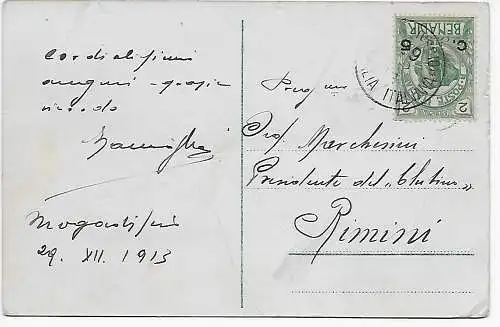 Cordialissimi
auguri - grazie
ricordo
Mogadiscio
29. XII. 1913
Preg mo
Prof. Marchesini
Presidente del "Club
Rimini
BENADIR
C. 5
2
ITALIANA